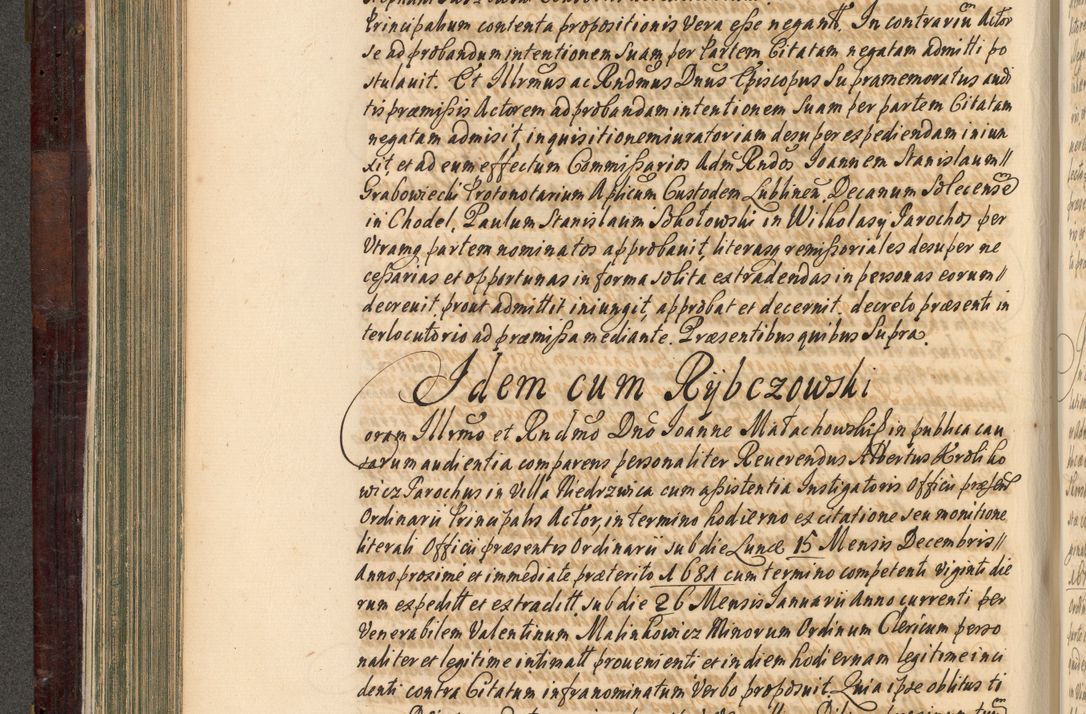 Principalium contenta propositionis vera esse negantt. In contrariũ Actor
se ad probandum intentionem Suam per Partem Citatam negatam admitti po
stulauit. Et Illrmus ac Rndmus Dnus Episcopus Supramemoratus audi
tis præmissis Actorem ad probandam intentionem Suam per partem Citatam
negatam admisit, inquisitionem iuratoriam desuper expediendam iniun
xit, et ad eum effectum Commissarios Adm Rndos Joannem Stanislaum //
Grabowiecki Protonotarium Aplicum Custodem Lublinen, Decanum Solecensem
in Chodel, Paulum Stanislaum Sokołowski in Wilkolasy Parochos per
Utramq partem nominatos approbauit, literasq remissoriales desuper ne
cessarias et opportunas in forma solita extradendas in personas eorum //
decreuit, prout admittit iniungit, approbat et decernit, decreto præsenti in
terlocutorio ad præmissa mediante. Præsentibus quibus Supra.
Idem cum Rÿbczowski
Coram Illrmo et Rndmo Dno Joanne Małachowski in publica cau
sarum audientia comparens personaliter Reuerendus Albertus Kroliko
wicz Parochus in Villa Niedrzwica cum assistentia Instigatoris Officii præsent
Ordinarii Principalis Actor, in termino hodierno ex citatione seu monitione
literali Officii præsentis Ordinarii sub die Lunæ 15 Mensis Decembris //
Anno proxime et immediate præterito 1681 cum termino competenti viginti die
rum expeditt et extraditt, sub die 26 Mensis Januarii Anno currenti per
Venerabilem Valentinum Malinkowicz Minorum Ordinum Clericum perso
naliter et legitime intimatt prouenienti et in diem hodiernam legitime inci
denti contra Citatum infranominatum Verbo proposuit. Quia ipse oblitus ti